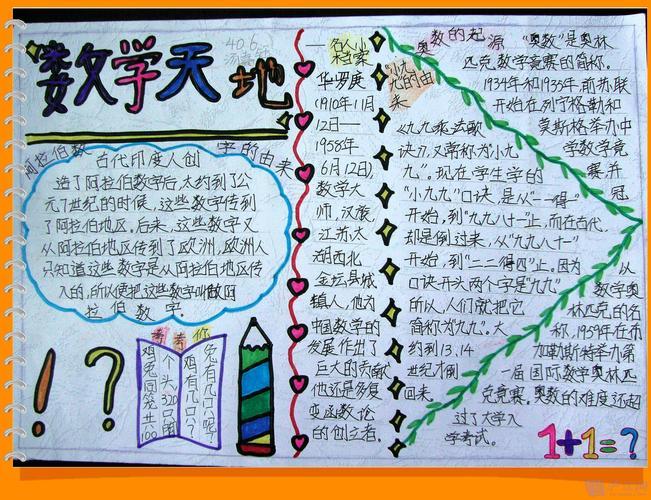 数学天地
40.6
阿拉伯数
字的由来
古代印度人创
造了阿拉伯数字后,大约到了公
元7世纪的时候,这些数字传到
了阿拉伯地区,后来,这些数字又
从阿拉伯地区传到了欧洲,欧洲人
只知道这些数字是从阿拉伯地区传
入的,所以便把这些数字叫做阿
拉伯数字。
!?
考考你
鸡兔同笼共100
个头320只脚
鸡有几只?
兔有几只呢
名人小
档案
华罗庚
(1910年11月
12日——
1958年
6月12日),
数学大
师,汉族,
江苏太
湖西北
金坛县城
镇人,他为
中国数学的
发展作出了
巨大的贡献
他还是多复
变函数论
的创立者。
“小九
九”的由
来
《九九乘法歌
诀》,又常称为“小九
九”。现在学生学的
“小九九”口诀,是从“一一得一”
开始,到“九九八十一”止,而在古代,
却是倒过来,从“九九八十一”
开始,到“二二得四”止。因为
口诀开头两个字是“九九”
所以,人们就把它
简称为“九九”。大
约到13、14
世纪才倒
回来。
奥数的起源
“奥数”是奥林
匹克数学竞赛的简称。
1934年和1935年,前苏联
开始在列宁格勒和
莫斯格举办中
学数学竞
赛并
冠
以
数学奥
林匹克的名
称,1959年在布
加勒斯特举办第
一届国际数学奥林匹
克竞赛。奥数的难度还超
过了大学入
学考试。
1+1=?